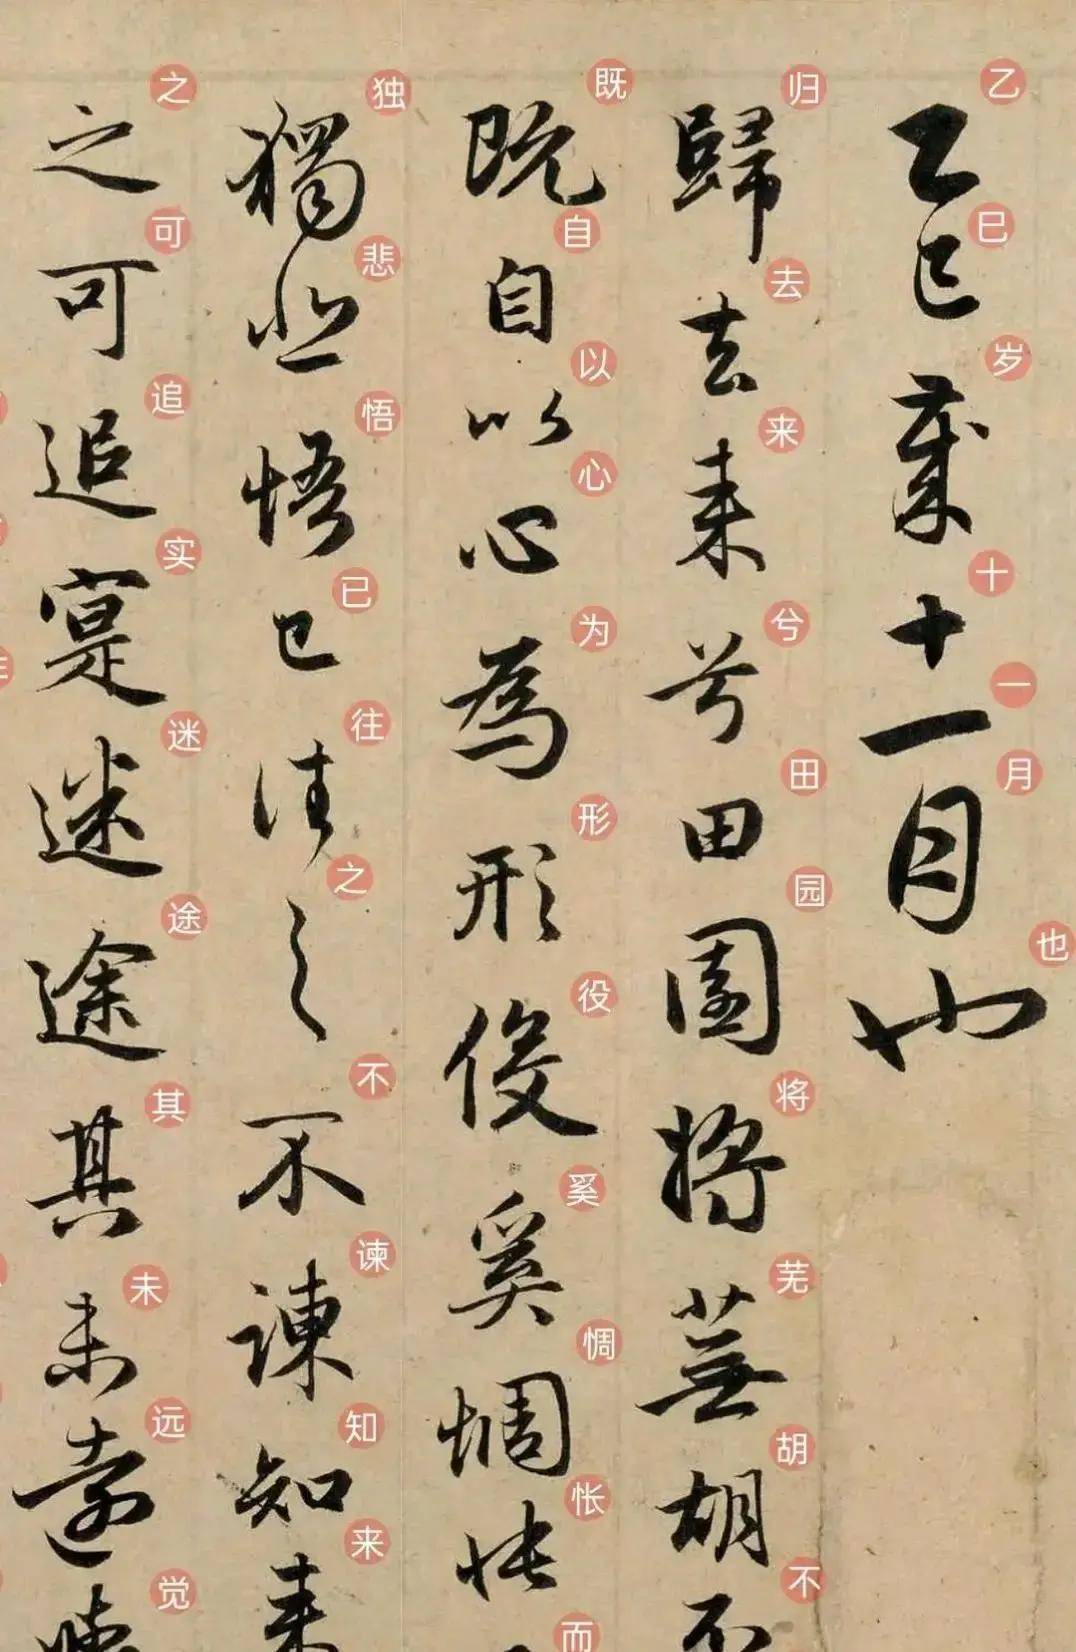 乙巳歲十一月也
歸去來兮田園將蕪胡不
既自以心為形役奚惆悵而
獨悲悟已往之不諫知來
之可追寔迷途其未遠覺
乙巳岁十一月也
归去来兮田园将芜胡不
既自以心为形役奚惆怅而
独悲悟已往之不谏知来
之可追实迷途其未远觉